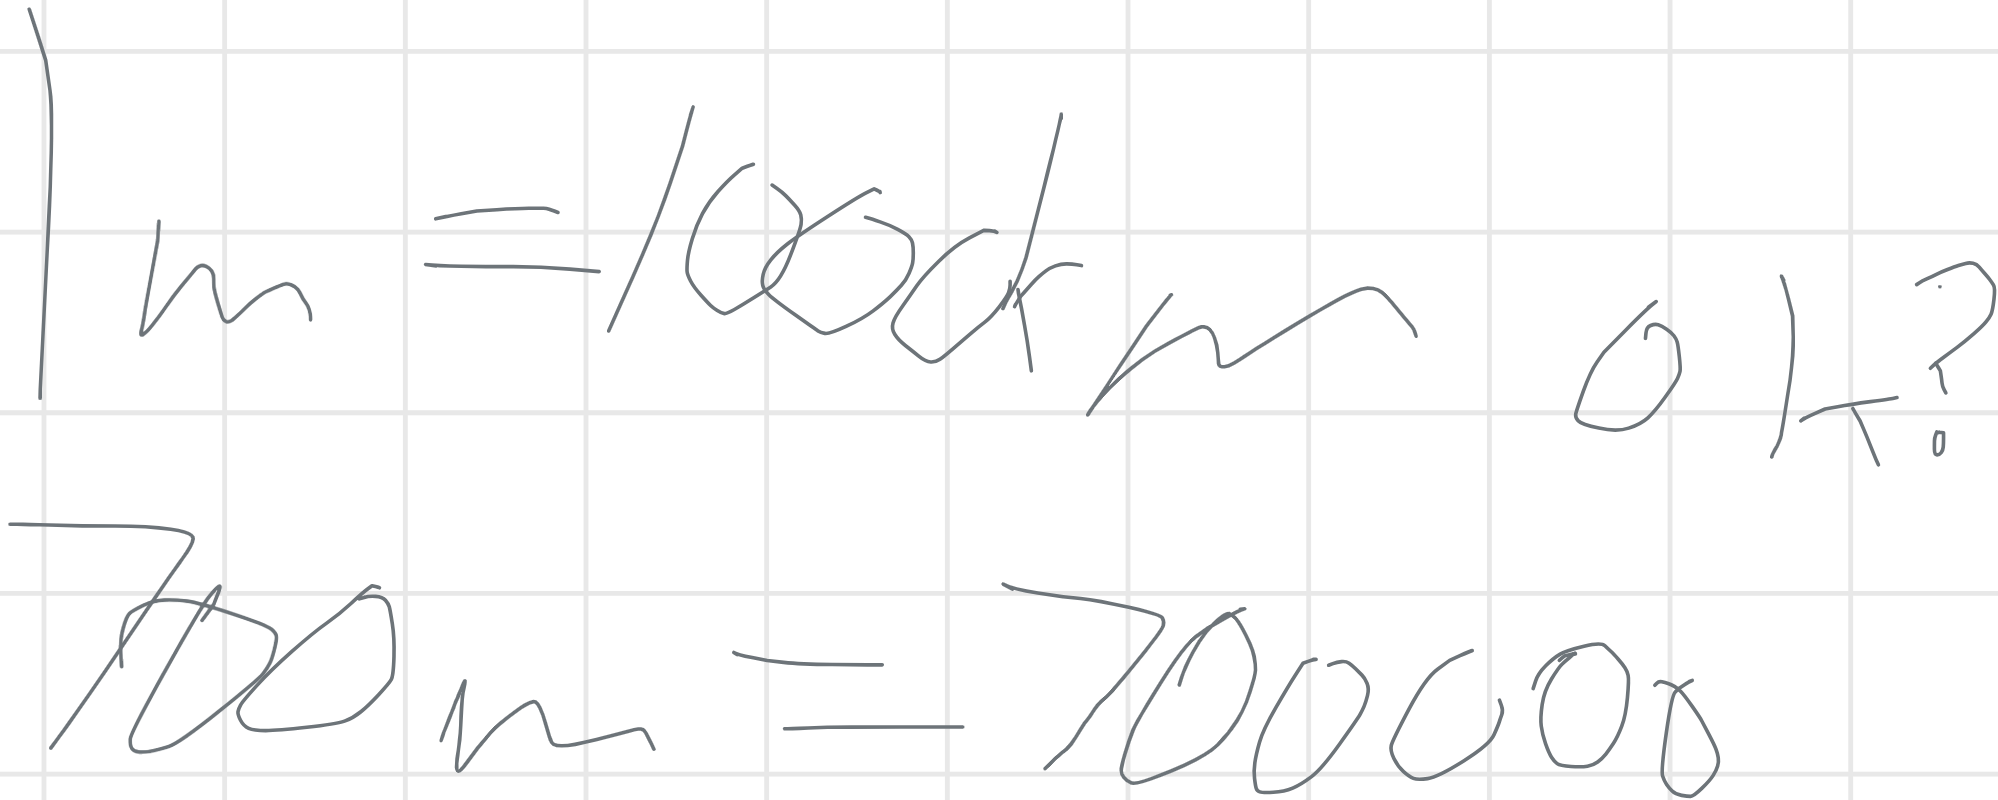 1 m = 1000 km ok?
700 m = 700000